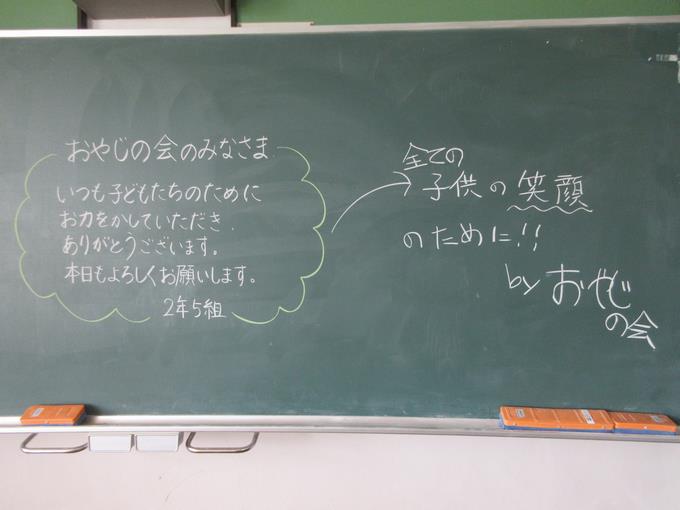 おやじの会のみなさま
いつも子どもたちのために
お力をかしていただき、
ありがとうございます。
本日もよろしくお願いします。
2年5組
全ての
子供の笑顔
のために!!
by おやじ
の会